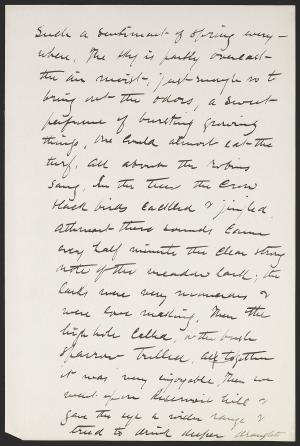 Such a sentiment of spring every-
where. The sky is partly overcast
the air moist, just enough so to
bring out the odors, a sweet
perfume of bursting growing
things. One could almost eat the
turf. All about the robins
sang. In the trees the crow
black birds cackled & jingled.
Athwart these sounds came
every half minute the clear strong
note of the meadow lark; the
larks were very numerous &
were love making. Then the
high hole called, or the bush
sparrow trilled. Altogether
it was very enjoyable. Then we
went upon Reservoir hill &
gave the eye a wider range &
tried to drink deeper draughts